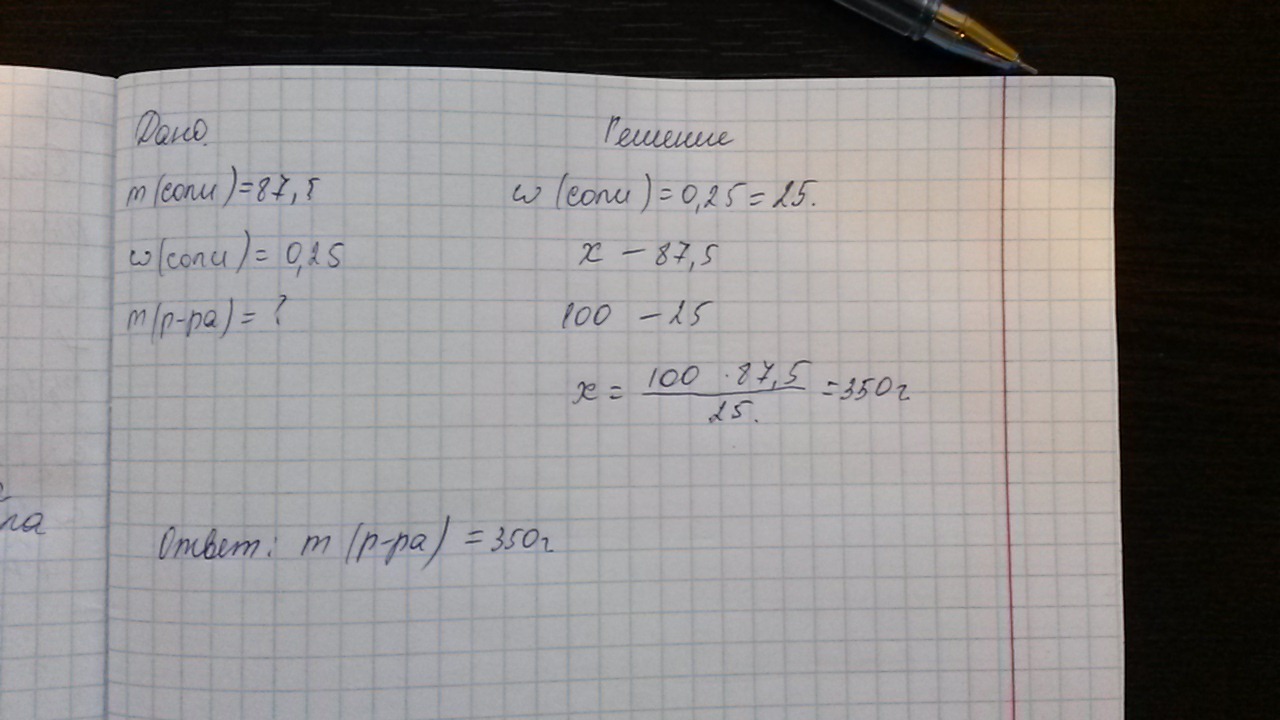 Дано.
m(соли)=87,5
w(соли)= 0,25
m(р-ра)= ?
Решение
w (соли)=0,25=25.
x – 87,5
100 – 25
x = 100 · 87,5 / 25. =350г
Ответ: m (р-ра) =350г